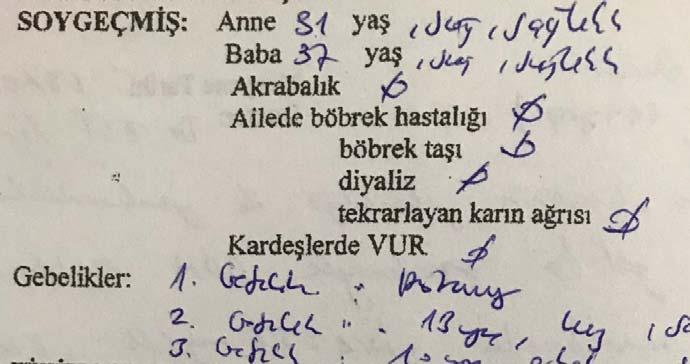 SOYGEÇMİŞ: Anne 31 yaş, sağ, sağlıklı
Baba 37 yaş, sağ, sağlıklı
Akrabalık ∅
Ailede böbrek hastalığı ∅
böbrek taşı ∅
diyaliz ∅
tekrarlayan karın ağrısı ∅
Kardeşlerde VUR ∅
Gebelikler: 1. Gebelik :
2. Gebelik : 13 yaş, kız,
3. Gebelik